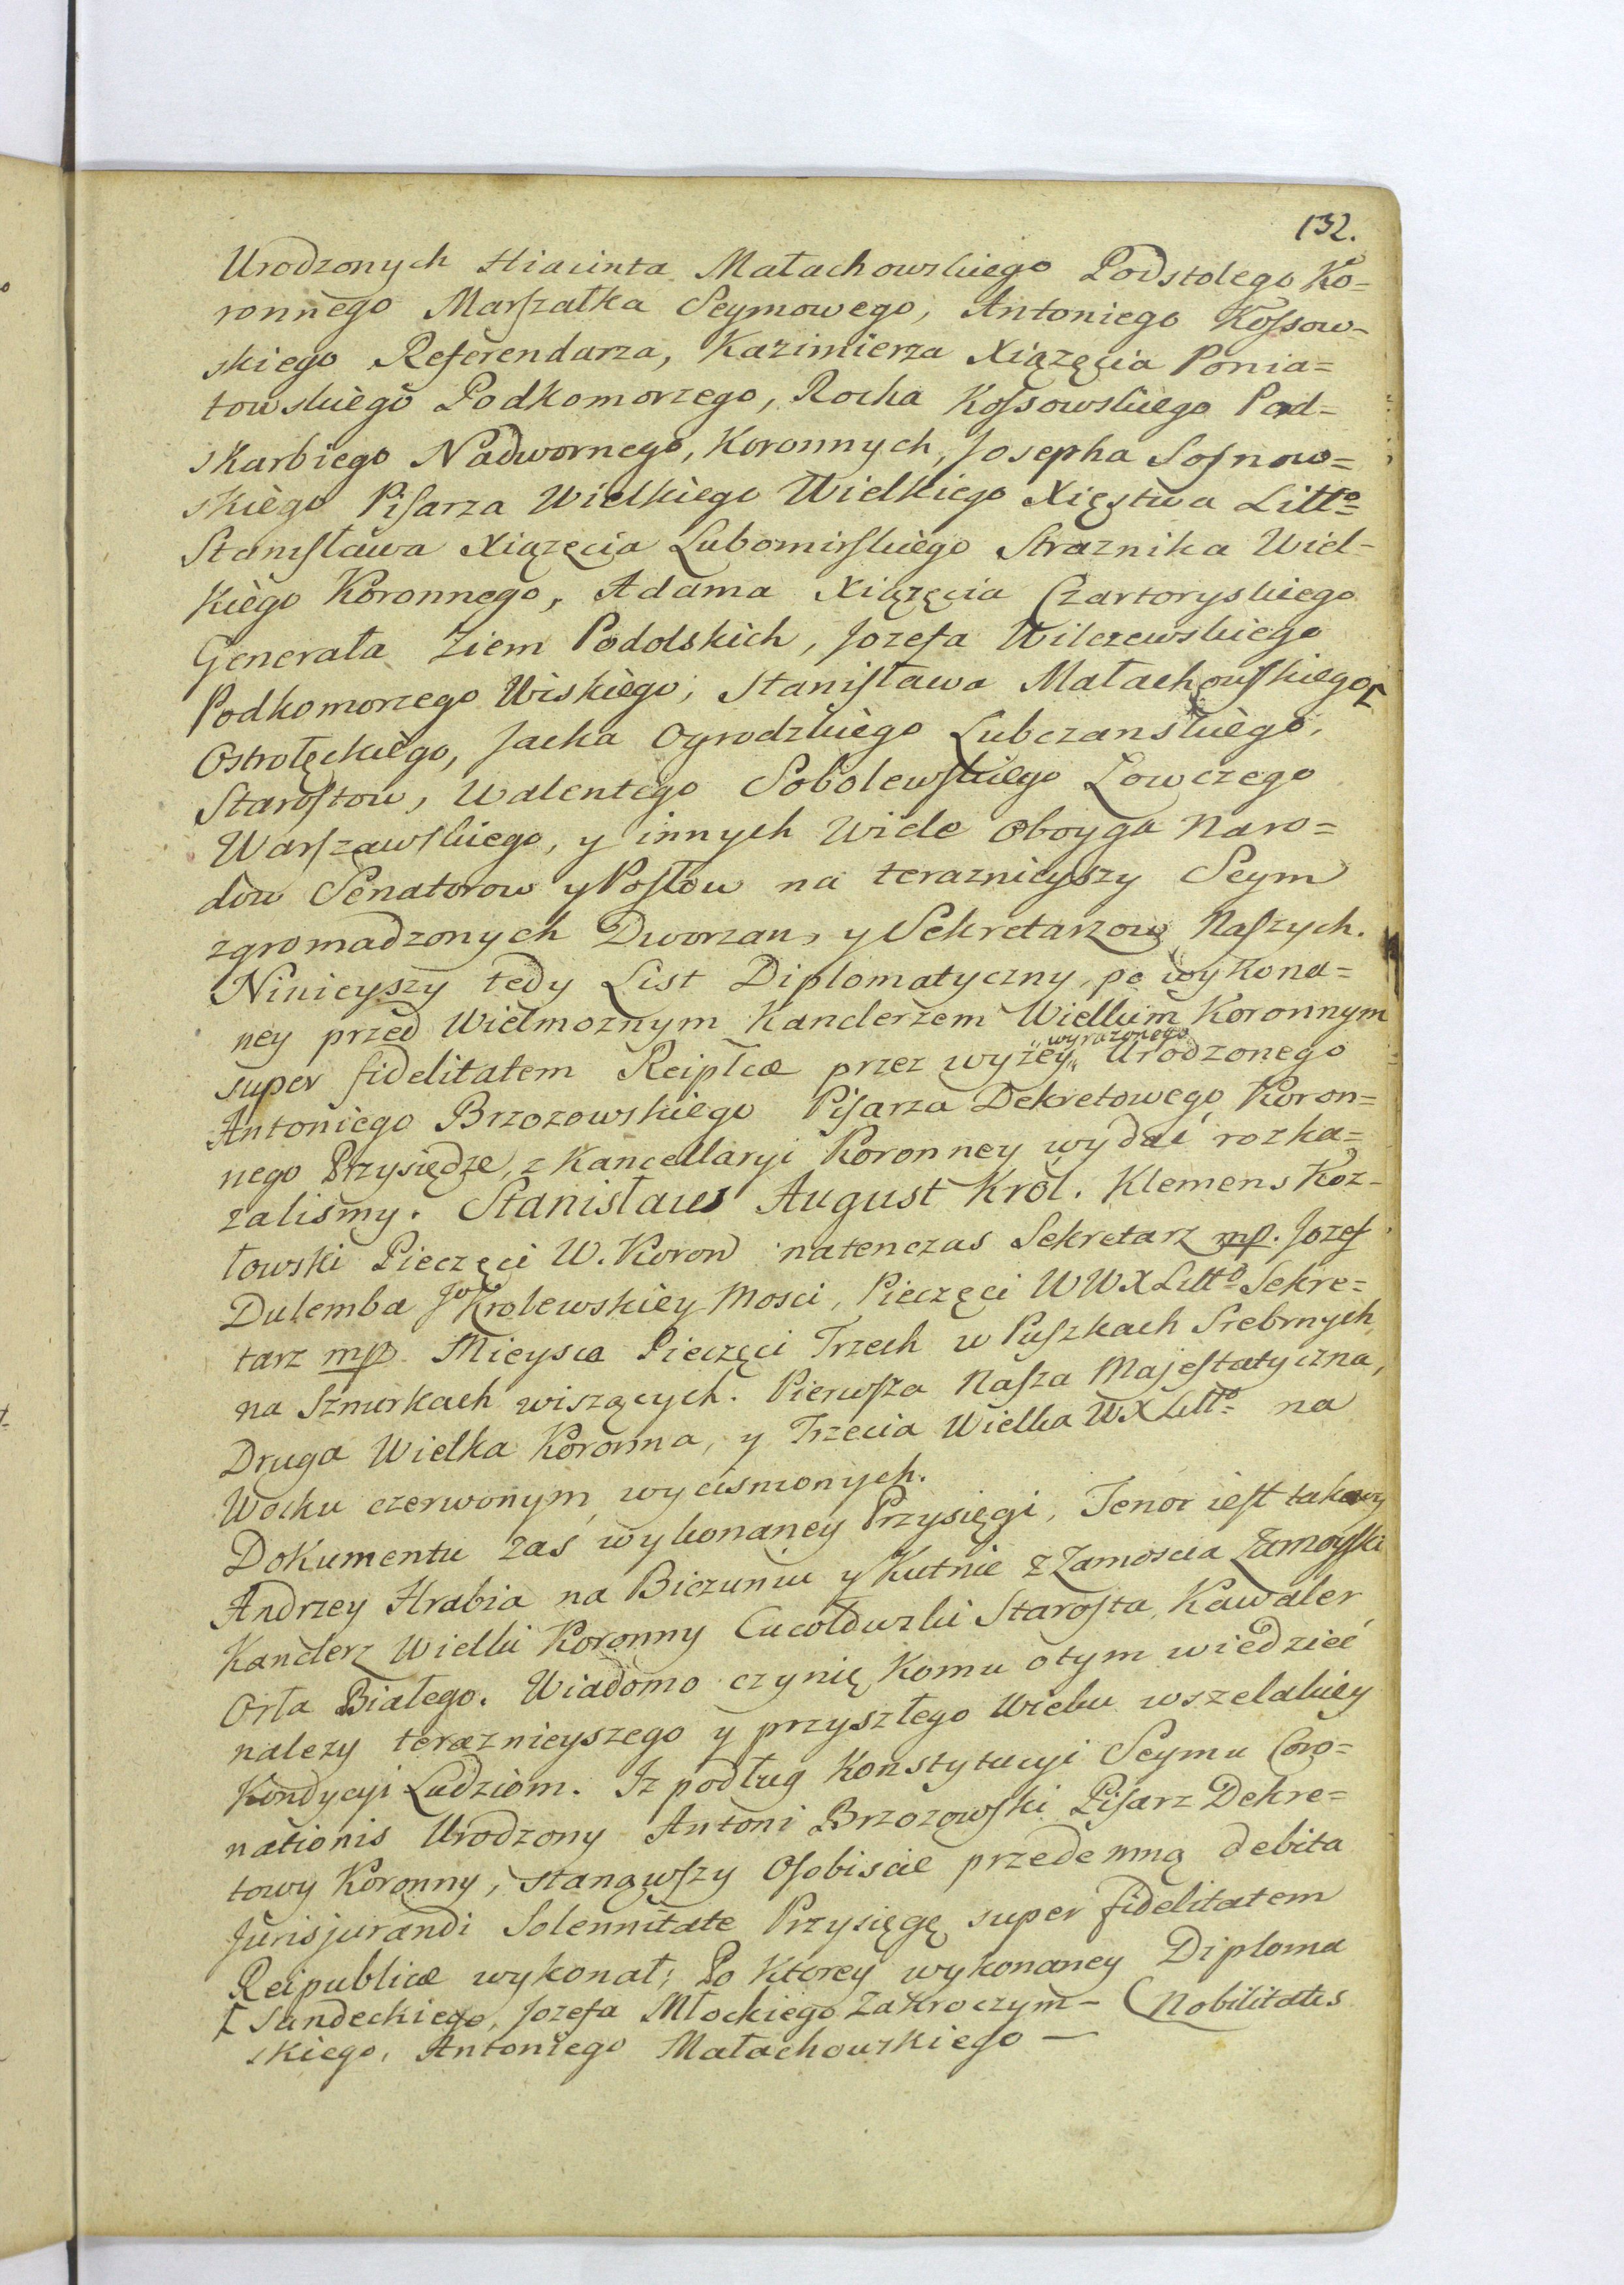 132.
Urodzonych Hiacinta Małachowskiego Podstolego Ko=
ronnego Marszałka Seymowego, Antoniego Kossow-
skiego Referendarza, Kazimierza Xiązęcia Ponia=
towskiego Podkomorzego, Rocha Kossowskiego Pod=
skarbiego Nadwornego, Koronnych, Josepha Sosnow=
skiego Pisarza Wielkiego Wielkiego Xięstwa Litto=
Stanisława Xiązęcia Lubomirskiego Straznika Wiel-
kiego Koronnego, Adama Xiązęcia Czartoryskiego
Generała Ziem Podolskich, Jozefa Wilczewskiego
Podkomorzego Wiskiego, Stanisława Małachowskiego [
Ostrołęckiego, Jacka Ogrodzkiego Lubczanskiego,
Starostow, Walentego Sobolewskiego Łowczego
Warszawskiego, y innych Wiele oboyga Naro=
dow Senatorow y Posłow na teraznieyszy Seym
zgromadzonych Dworzan, y Sekretarzow Naszych.
Ninieyszy tedy List Diplomatyczny, po wykona=
ney przed Wielmoznym Kanclerzem Wielkim Koronnym
super fidelitatem Reiplcæ przez wyzey „wyrazonego„ Urodzonego
Antoniego Brzozowskiego Pisarza Dekretowego Koron=
nego Przysiędze, z Kancellaryi Koronney wydać rozka=
zalismy. Stanisław August Krol. Klemens Koz-
łowski Pieczęci W. Koron natenczas Sekretarz mp. Jozef
Dulemba Jo Krolewskiey Mosci, Pieczęci WWXLitto Sekre=
tarz mp. Mieysca Pieczęci Trzech w Puszkach Srebrnych
na Sznurkach wiszących. Pierwsza Nasza Majestatyczna,
Druga Wielka Koronna, y Trzecia Wielka WXLitto= na
Wosku czerwonym wycisnionych.
Dokumentu zas wykonaney Przysięgi, Tenor iest takowy
Andrzey Hrabia na Biezuniu y Kutnie z Zamoscia Zamoyski
Kanclerz Wielki Koronny Starosta, Kawaler
Orła Białego. Wiadomo czynię Komu otym wiedzieć
nalezy teraznieyszego y przyszłego Wieku wszelakiey
Kondycyi Ludziom. Iz podług Konstytucyi Seymu Coro=
nationis Urodzony Antoni Brzozowski Pisarz Dekre=
towy Koronny, stanąwszy Osobiscie przedemną debita
Jurisjurandi Solennitate Przysięgę super fidelitatem
Reipublicæ wykonał, Po Ktorey wykonaney Diploma
[ Sandeckiego, Jozefa Młockiego Zakroczym- (Nobilitatis
skiego, Antoniego Małachowskiego —